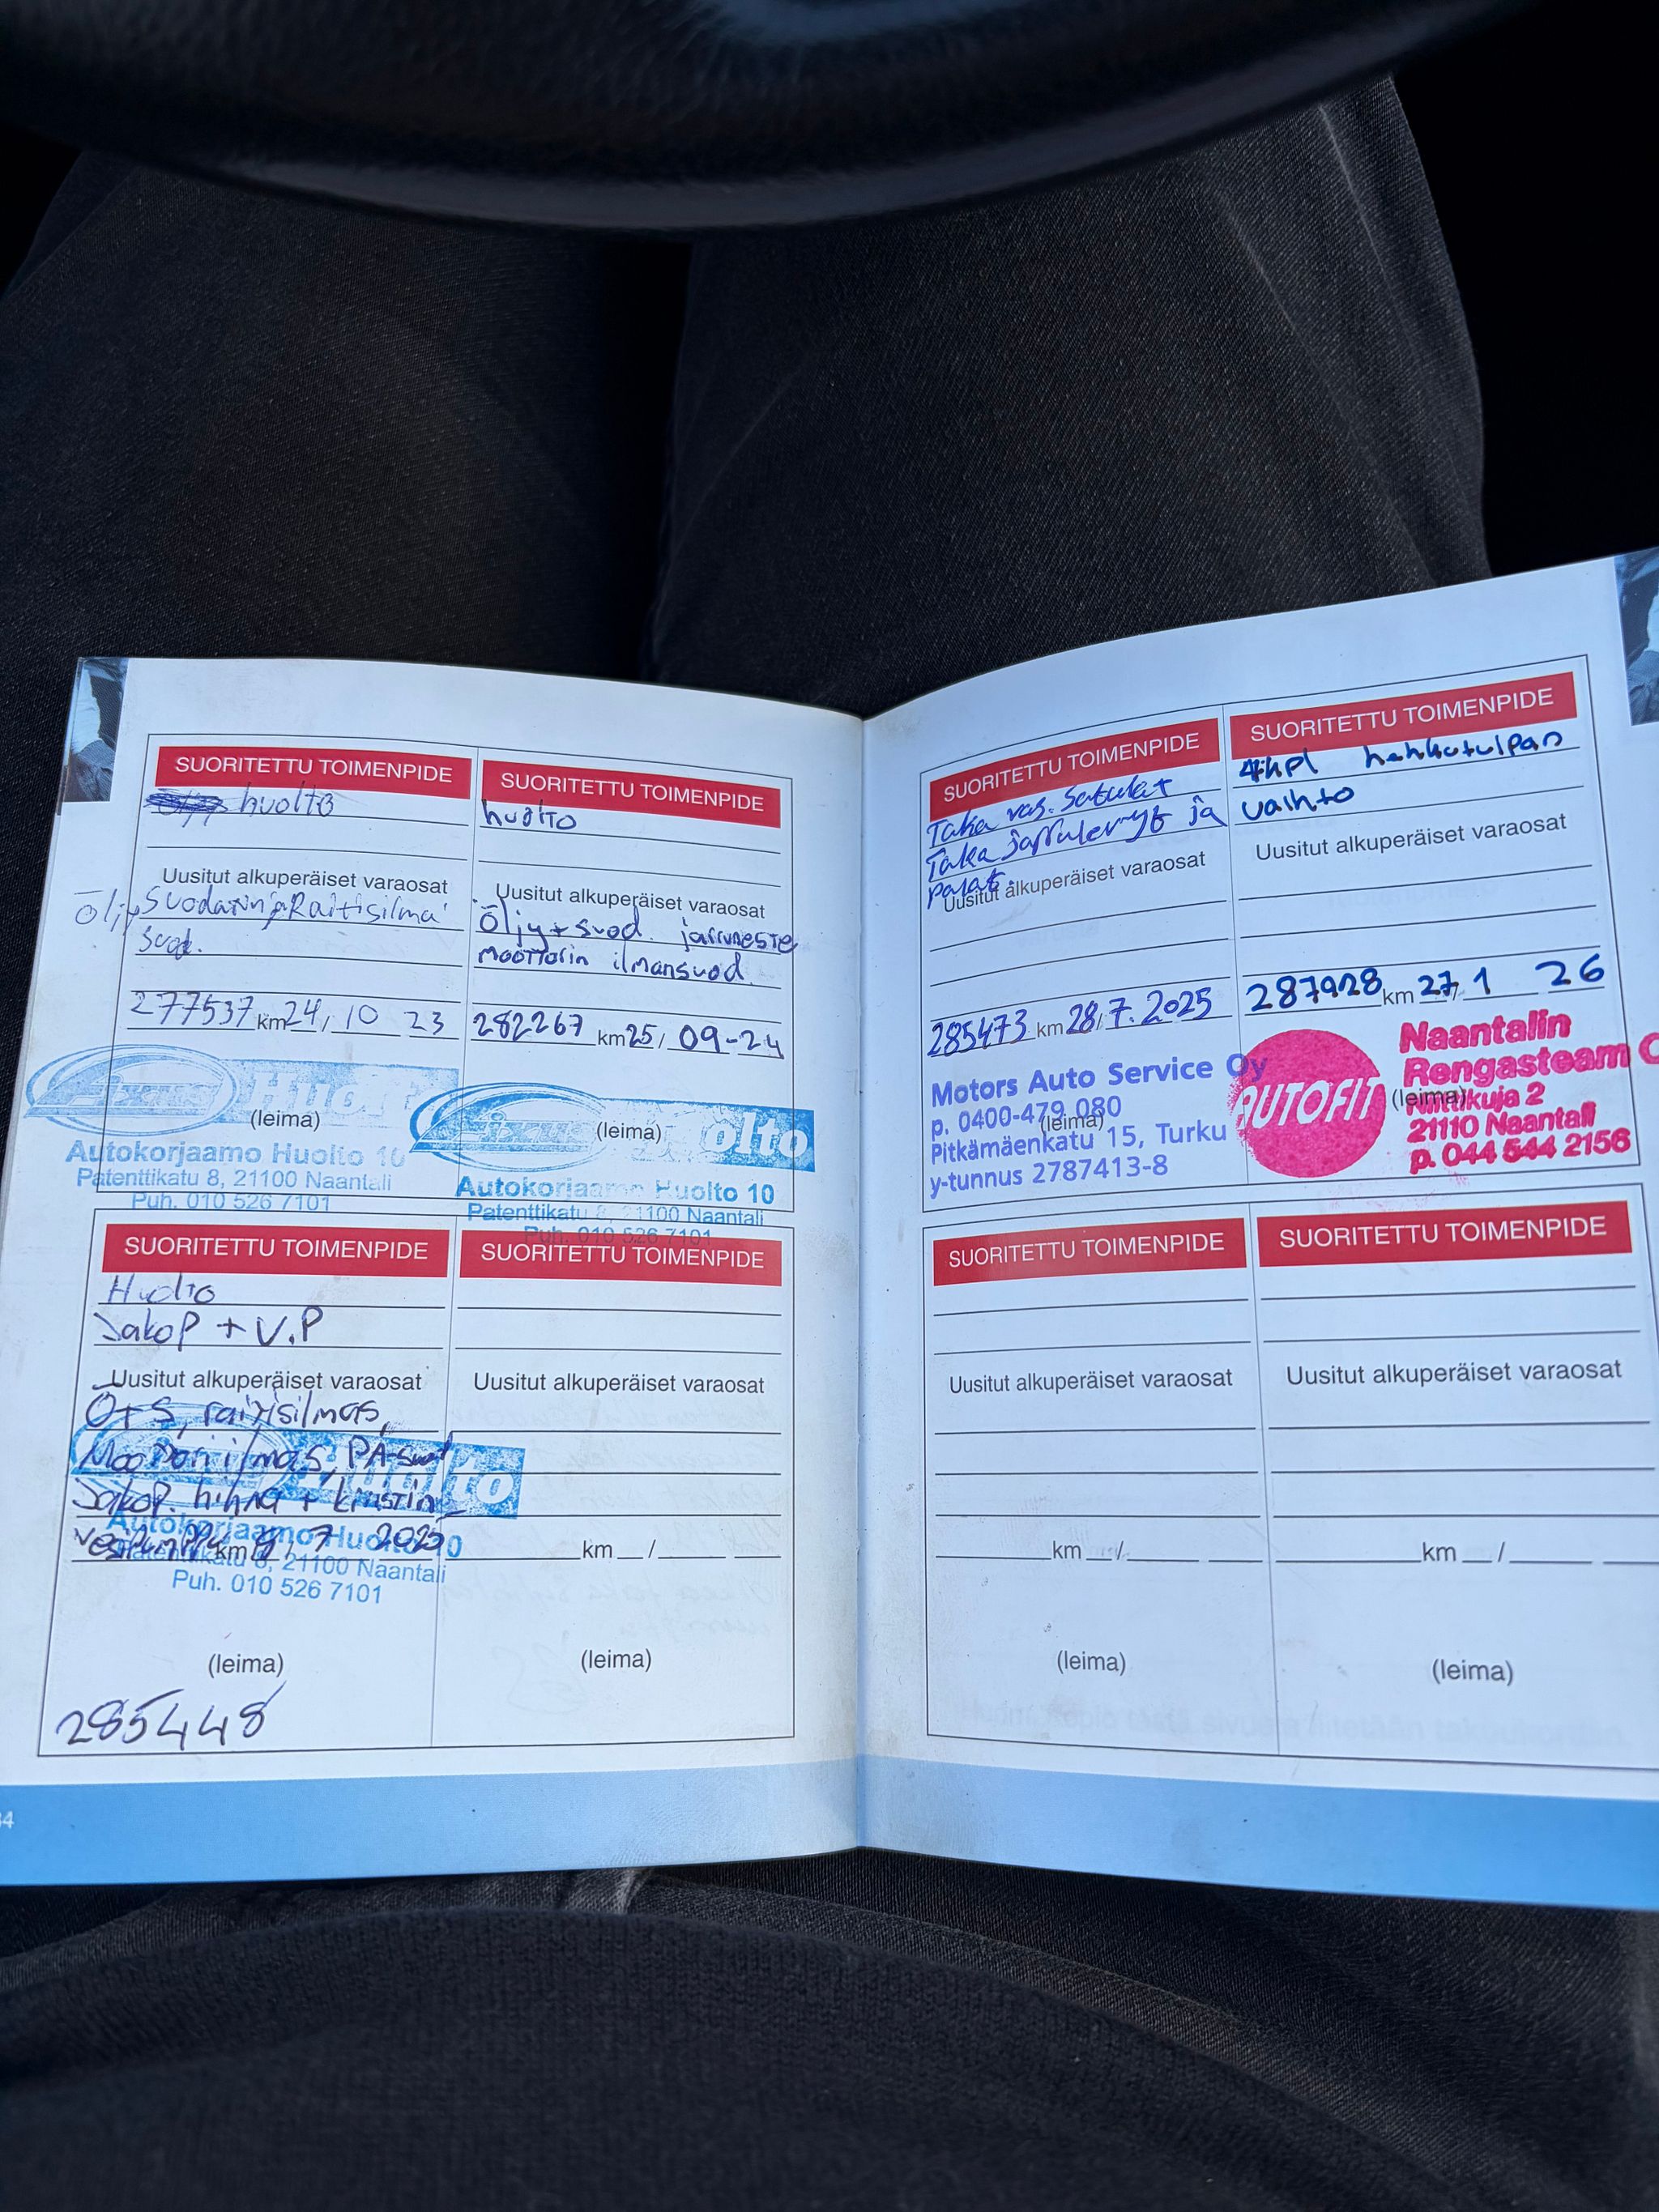 SUORITETTU TOIMENPIDE
huolto
Uusitut alkuperäiset varaosat
Öljy Suodatin ja Raitisilma
Suod.
277537 km 24/ 10 23
(leima)
Huolto
Autokorjaamo Huolto 10
Patenttikatu 8, 21100 Naantali
Puh. 010 526 7101
SUORITETTU TOIMENPIDE
huolto
Uusitut alkuperäiset varaosat
Öljy + suod. jarruneste
moottorin ilmansuod.
282267 km 25/ 09-24
(leima)
Autokorjaamo Huolto 10
Patenttikatu 8, 21100 Naantali
Puh. 010 526 7101
SUORITETTU TOIMENPIDE
Huolto
Jakop + V.P
Uusitut alkuperäiset varaosat
Ö+S, raitisilmas,
Moottori ilmas, PA-suod
Jakop. hihna + kiristin
vesipumppu km 7 2025
Autokorjaamo Huolto 10
Patenttikatu 8, 21100 Naantali
Puh. 010 526 7101
(leima)
285448
SUORITETTU TOIMENPIDE
Uusitut alkuperäiset varaosat
km /
(leima)
34
SUORITETTU TOIMENPIDE
Taka vas. Satulat
Taka jarrulevyt ja
palat.
Uusitut alkuperäiset varaosat
285473 km 28/7. 2025
Motors Auto Service Oy
p. 0400-479 080
(leima)
Pitkämäenkatu 15, Turku
y-tunnus 2787413-8
SUORITETTU TOIMENPIDE
4kpl hehkutulpan
vaihto
Uusitut alkuperäiset varaosat
287928 km 27/ 1 26
AUTOFIT
Naantalin
Rengasteam
(leima)
21110 Naantali
p. 044 544 2156
SUORITETTU TOIMENPIDE
Uusitut alkuperäiset varaosat
km /
(leima)
SUORITETTU TOIMENPIDE
Uusitut alkuperäiset varaosat
km /
(leima)